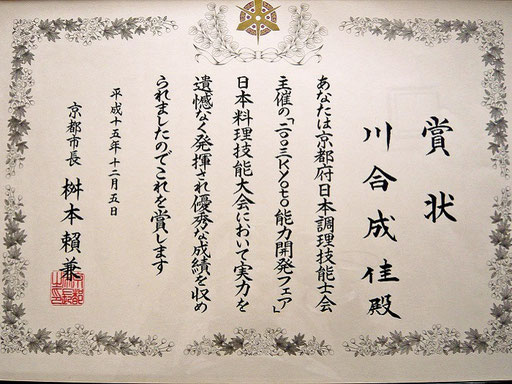 賞状
川合成佳殿
あなたは京都府日本調理技能士会
主催の「二〇〇三Kyoto能力開発フェア」
日本料理技能大会において実力を
遺憾なく発揮され優秀な成績を収め
られましたのでこれを賞します
平成十五年十二月五日
京都市長 桝本頼兼